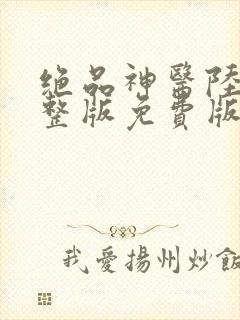 绝品神醫陸
整版免費版
我愛揚州炒飯